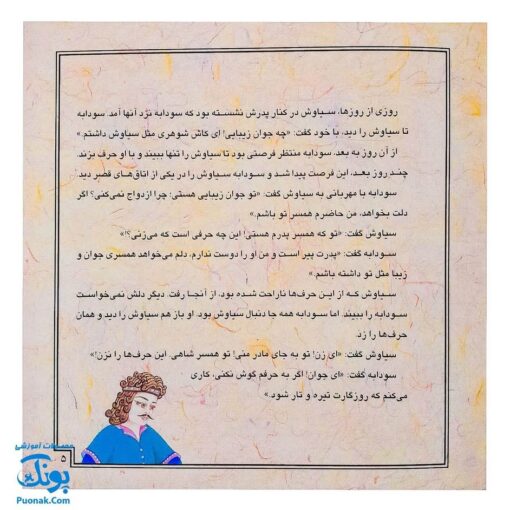 روزی از روزها، سیاوش در کنار پدرش نشسته بود که سودابه نزد آنها آمد. سودابه
تا سیاوش را دید، با خود گفت: «چه جوان زیبایی! ای کاش شوهری مثل سیاوش داشتم.»
از آن روز به بعد، سودابه منتظر فرصتی بود تا سیاوش را تنها ببیند و با او حرف بزند.
چند روز بعد، این فرصت پیدا شد و سودابه سیاوش را در یکی از اتاق‌های قصر دید.
سودابه با مهربانی به سیاوش گفت: «تو جوان زیبایی هستی؛ چرا ازدواج نمی‌کنی؟ اگر
دلت بخواهد، من حاضرم همسر تو باشم.»
سیاوش گفت: «تو که همسر پدرم هستی! این چه حرفی است که می‌زنی؟!»
سودابه گفت: «پدرت پیر است و من او را دوست ندارم. دلم می‌خواهد همسری جوان و
زیبا مثل تو داشته باشم.»
سیاوش که از این حرف‌ها ناراحت شده بود، از آنجا رفت. دیگر دلش نمی‌خواست
سودابه را ببیند. اما سودابه همه جا دنبال سیاوش بود. او باز هم سیاوش را دید و همان
حرف‌ها را زد.
سیاوش گفت: «ای زن! تو به جای مادر منی! تو همسر شاهی. این حرف‌ها را نزن!»
سودابه گفت: «ای جوان! اگر به حرفم گوش نکنی، کاری
می‌کنم که روزگارت تیره و تار شود.»
۵
محصولات آموزشی
پونک
Puonak.Com